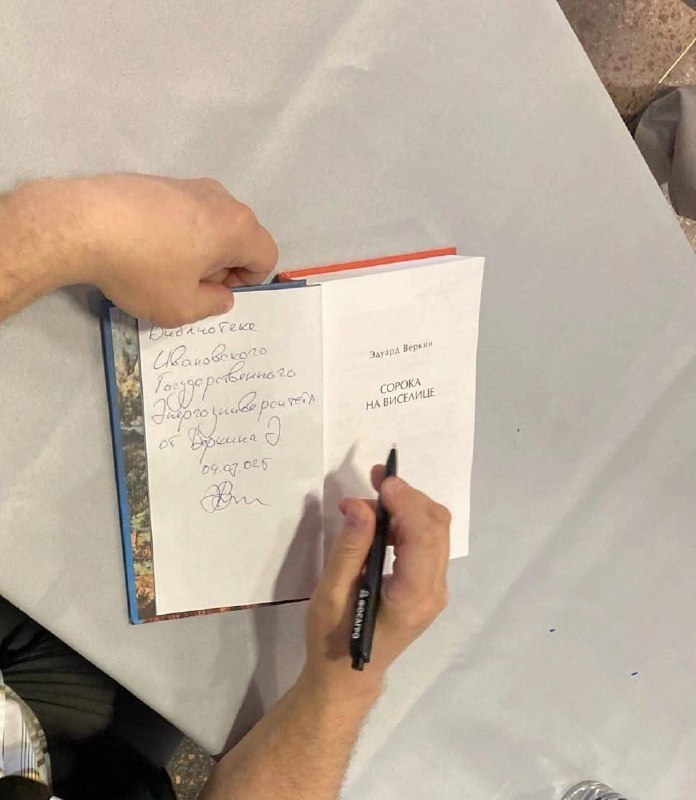 Библиотеке
Ивановского
Государственного
Энергоуниверситета
от Веркина Э.
04.07.025
Эдуард Веркин
СОРОКА
НА ВИСЕЛИЦЕ
ФОСАГРО